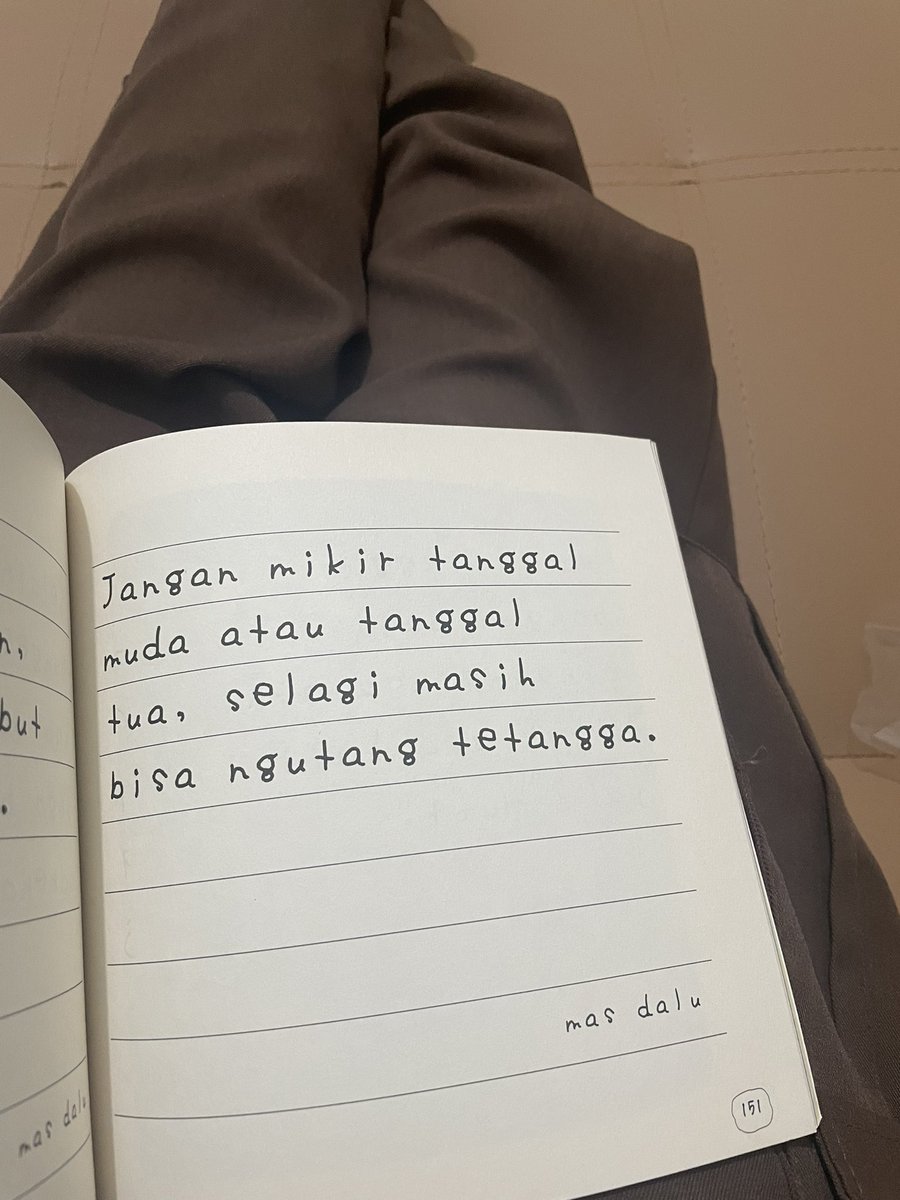 Jangan mikir tanggal
muda atau tanggal
tua, selagi masih
bisa ngutang tetangga.
mas dalu
151
but
mas dalu